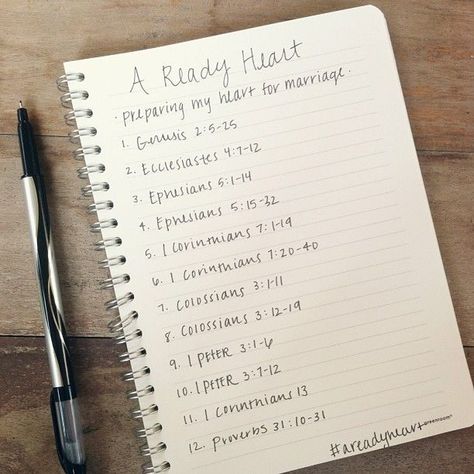 A Ready Heart
· preparing my heart for marriage ·
1. Genesis 2:5-25
2. Ecclesiastes 4:7-12
3. Ephesians 5:1-14
4. Ephesians 5:15-32
5. 1 Corinthians 7:1-19
6. 1 Corinthians 7:20-40
7. Colossians 3:1-11
8. Colossians 3:12-19
9. 1 PETER 3:1-6
10. 1 PETER 3:7-12
11. 1 Corinthians 13
12. Proverbs 31:10-31
greenroom
#areadyheart